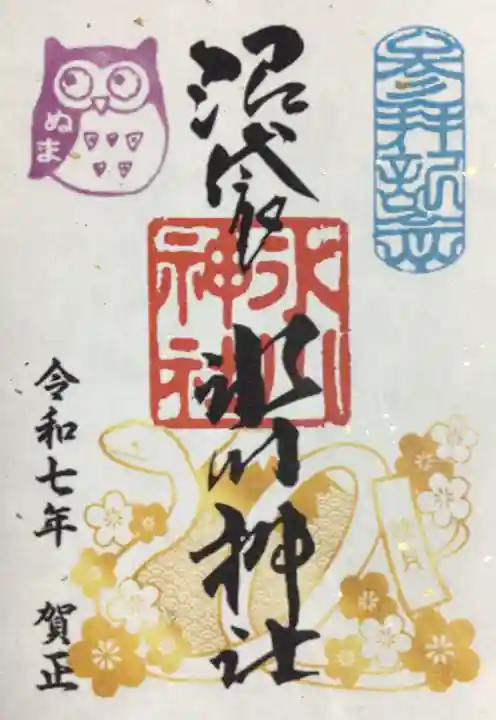 参拝記念
沼袋氷川神社
氷川
神社
ぬま
令和七年 賀正